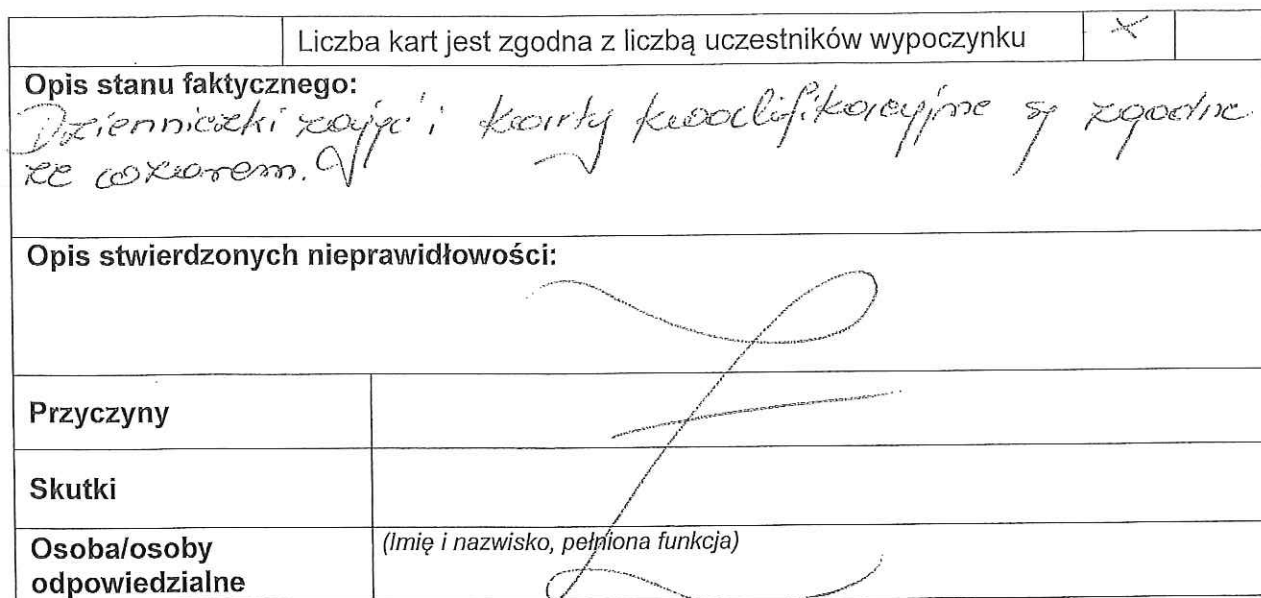 Liczba kart jest zgodna z liczbą uczestników wypoczynku X
Opis stanu faktycznego:
Dzienniczki zajęć i karty kwalifikacyjne są zgodne
ze wzorem.
Opis stwierdzonych nieprawidłowości:
Przyczyny
Skutki
Osoba/osoby odpowiedzialne
(Imię i nazwisko, pełniona funkcja)